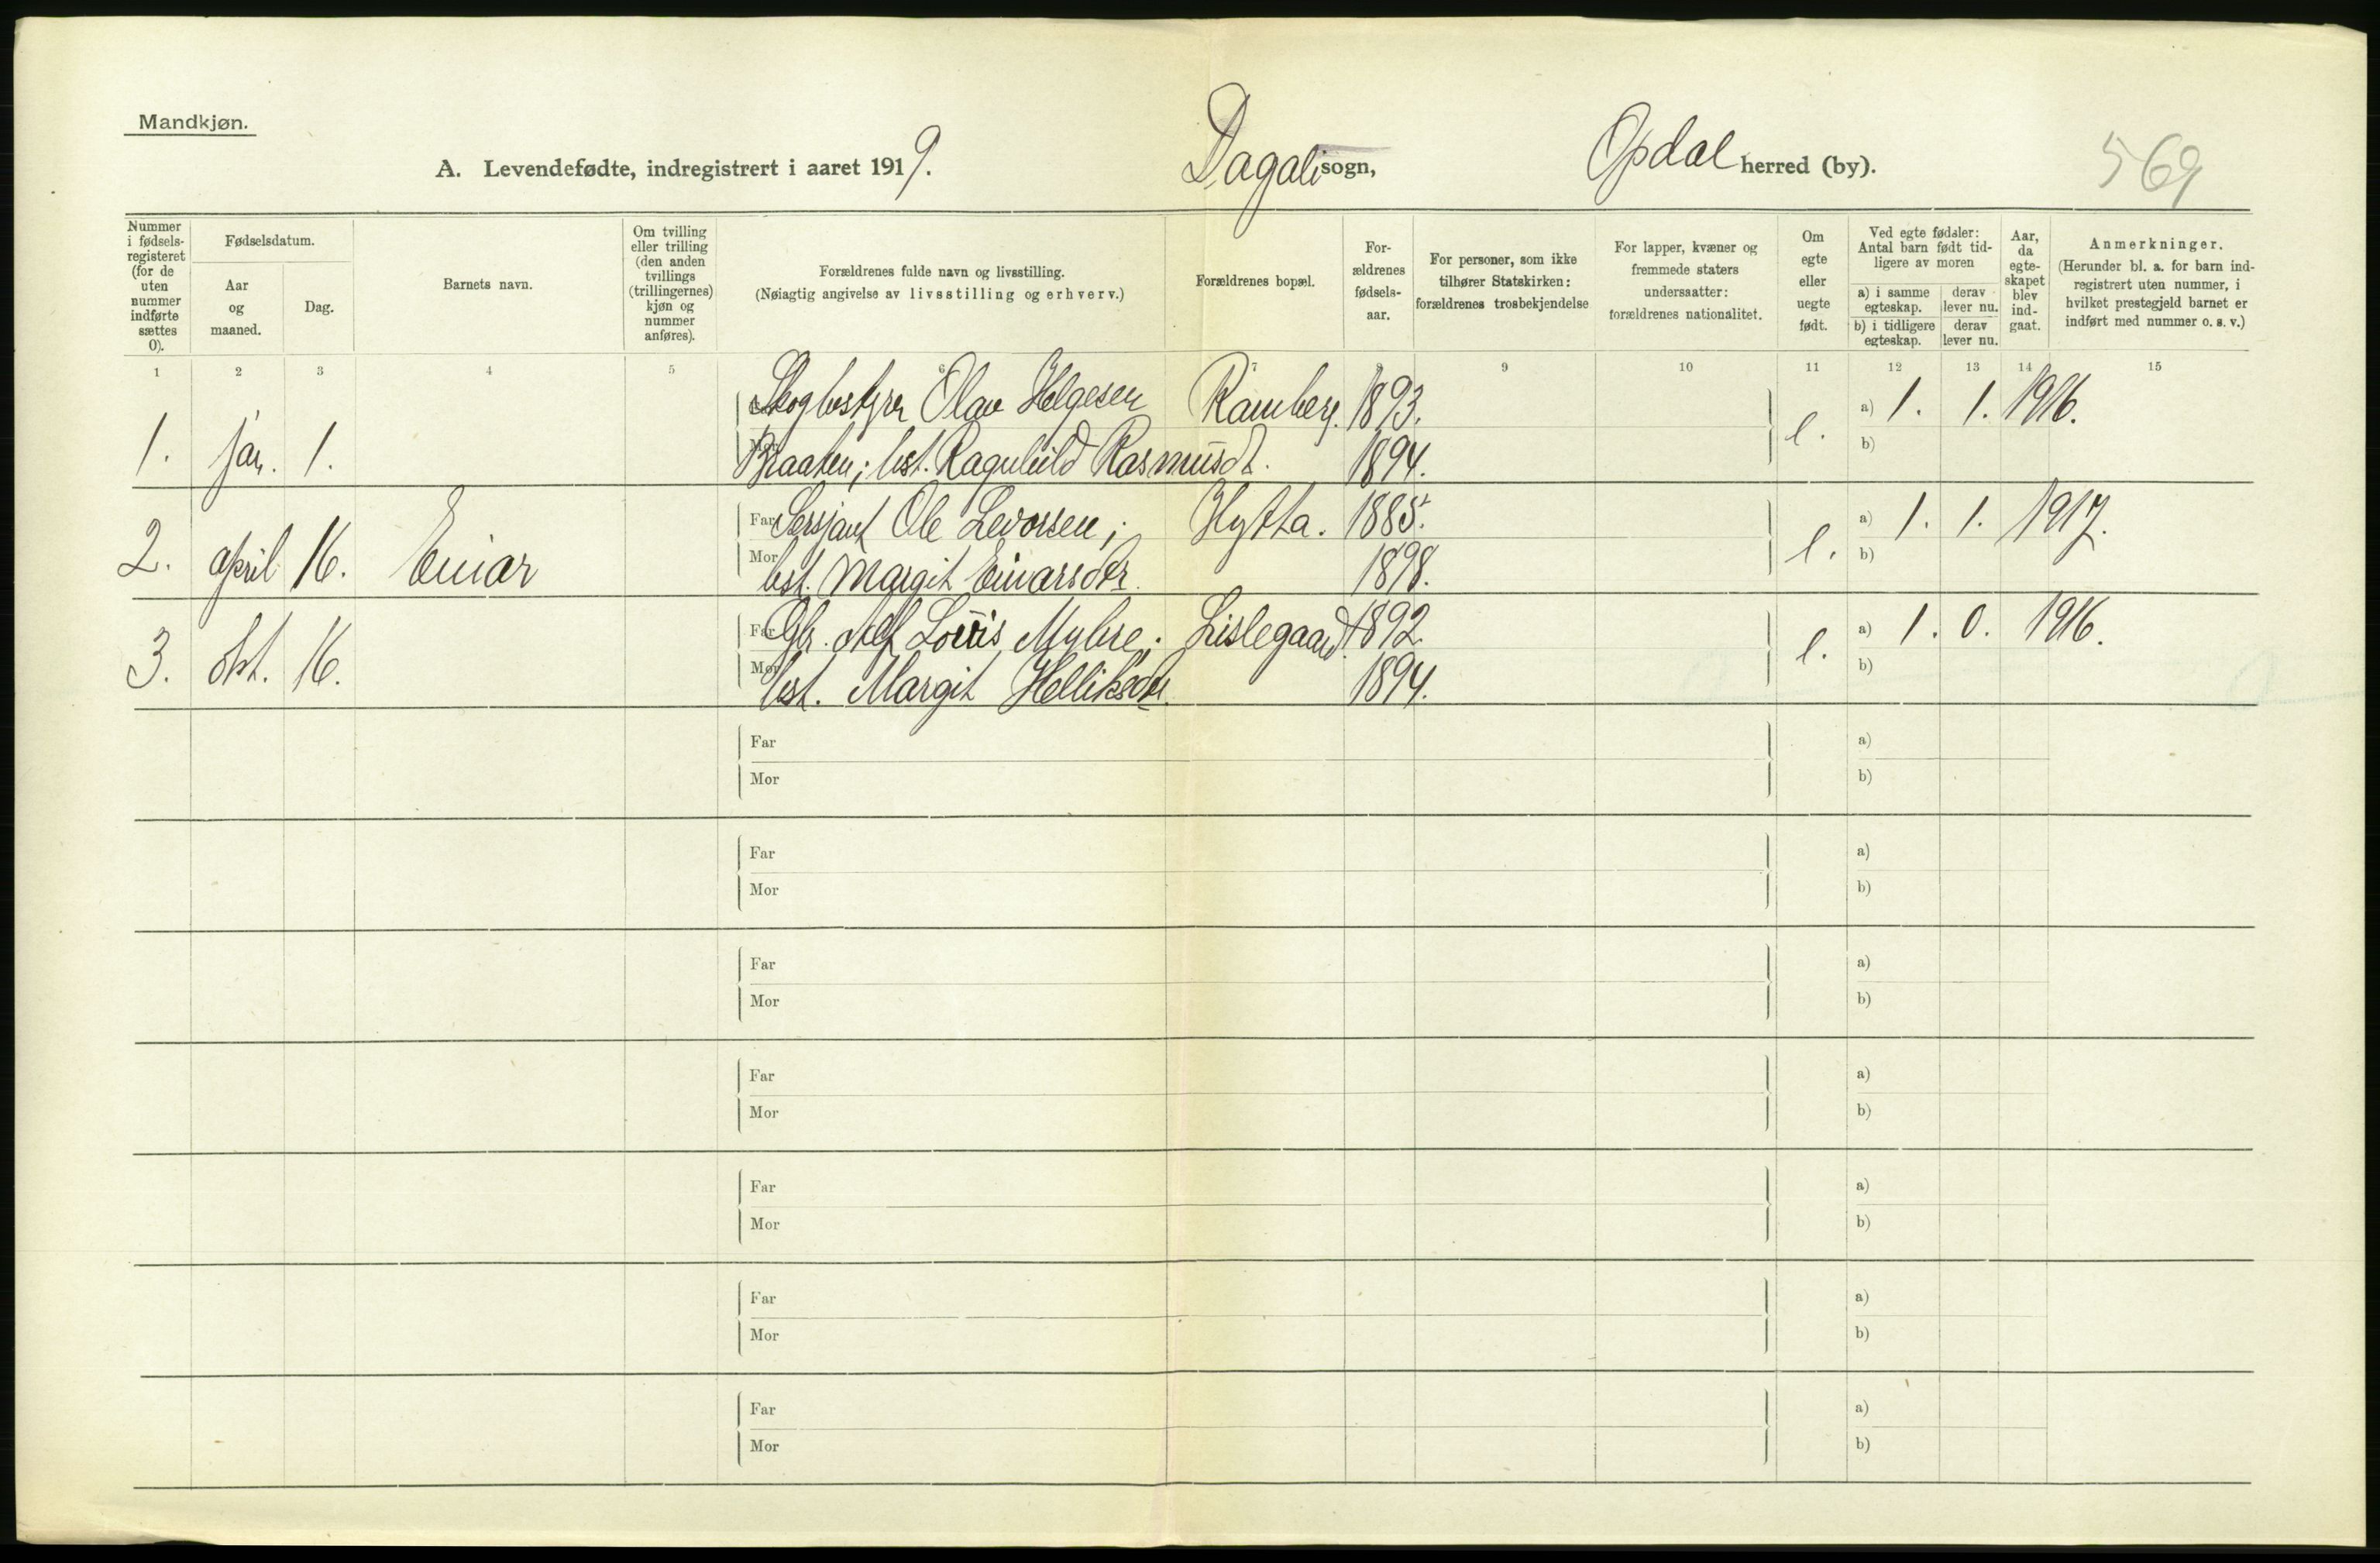 Mandkjøn.
A. Levendefødte, indregistrert i aaret 1919. Dagali sogn, Opdal herred (by). 569
Nummer i fødsels-registeret (for de uten nummer indførte sættes 0).
Fødselsdatum.
Aar og maaned.
Dag.
Barnets navn.
Om tvilling eller trilling (den anden tvillings (trillingernes) kjøn og nummer anføres).
Forældrenes fulde navn og livsstilling.
(Nøiagtig angivelse av livsstilling og erhverv.)
Forældrenes bopæl.
For-ældrenes fødsels-aar.
For personer, som ikke tilhører Statskirken: forældrenes trosbekjendelse
For lapper, kvæner og fremmede staters undersaatter: forældrenes nationalitet.
Om egte eller uegte født.
Ved egte fødsler: Antal barn født tid-ligere av moren
a) i samme egteskap.
derav lever nu.
b) i tidligere egteskap.
derav lever nu.
Aar, da egte-skapet blev ind-gaat.
Anmerkninger.
(Herunder bl. a. for barn ind-registrert uten nummer, i hvilket prestegjeld barnet er indført med nummer o. s. v.)
1 2 3 4 5 6 7 8 9 10 11 12 13 14 15
Skogbestyrer Olav Helgesen Ramberg. 1893. a) 1. 1. 1916.
1. jan. 1. Braaten; hst. Ragnhild Rasmusdt. 1894. e. b)
Far Sersjant Ole Levorsen; Hytta. 1885. a) 1. 1. 1917.
2. april 16. Einar Mor hst. Margit Einarsdtr. 1898. e. b)
Far Gbr. Alf Louis Myhre; Lislegaard. 1892. a) 1. 0. 1916.
3. okt. 16. Mor hst. Margit Helliksdtr. 1894. e. b)
Far a)
Mor b)
Far a)
Mor b)
Far a)
Mor b)
Far a)
Mor b)
Far a)
Mor b)
Far a)
Mor b)
Far a)
Mor b)